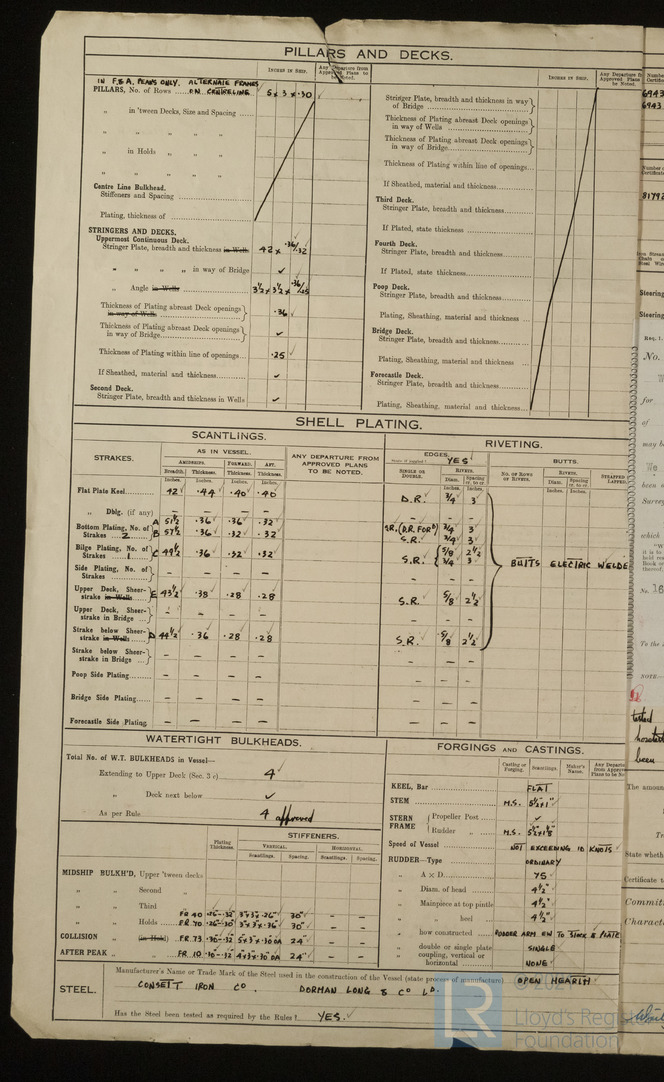 PILLARS AND DECKS.
INCHES IN SHIP.
Any Departure from Approved Plans to be Noted.
IN F & A. PEAKS ONLY. ALTERNATE FRAMES
PILLARS, No. of Rows ON CENTRELINE 5 x 3 x .30 ✓
„ in 'tween Decks, Size and Spacing
„ „ „ „
„ in Holds „ „
„ „ „ „
Centre Line Bulkhead.
Stiffeners and Spacing
Plating, thickness of
STRINGERS AND DECKS.
Uppermost Continuous Deck.
Stringer Plate, breadth and thickness in Wells 42 x .36/.32
„ „ „ „ in way of Bridge ✓
„ Angle in Wells 3½ x 3½ x
Thickness of Plating abreast Deck openings in way of Wells .36 ✓
Thickness of Plating abreast Deck openings in way of Bridge ✓
Thickness of Plating within line of openings .25 ✓
If Sheathed, material and thickness ✓
Second Deck.
Stringer Plate, breadth and thickness in Wells ✓
INCHES IN SHIP.
Any Departure from Approved Plans to be Noted.
Stringer Plate, breadth and thickness in way of Bridge
Thickness of Plating abreast Deck openings in way of Wells
Thickness of Plating abreast Deck openings in way of Bridge
Thickness of Plating within line of openings
If Sheathed, material and thickness
Third Deck.
Stringer Plate, breadth and thickness
If Plated, state thickness
Fourth Deck.
Stringer Plate, breadth and thickness
If Plated, state thickness
Poop Deck.
Stringer Plate, breadth and thickness
Plating, Sheathing, material and thickness
Bridge Deck.
Stringer Plate, breadth and thickness
Plating, Sheathing, material and thickness
Forecastle Deck.
Stringer Plate, breadth and thickness
Plating, Sheathing, material and thickness
SHELL PLATING.
SCANTLINGS.
RIVETING.
STRAKES.
AS IN VESSEL.
AMIDSHIPS. FORWARD. AFT.
Breadth. Thickness. Thickness. Thickness.
Inches. Inches. Inches. Inches.
ANY DEPARTURE FROM APPROVED PLANS TO BE NOTED.
EDGES.
YES ✓
SINGLE OR DOUBLE.
RIVETS.
Diam. Spacing cr. to cr.
Inches. Inches.
BUTTS.
NO. OF ROWS OF RIVETS.
RIVETS.
Diam. Spacing cr. to cr.
Inches. Inches.
Flat Plate Keel 42 .44 .40 .40 D.R. ¾ 3
„ Dblg. (if any) – – – –
Bottom Plating, No. of Strakes 2
A 51½ .36 .36 .32 (D.R. FOR'D) ¾ 3
B 57½ .36 .32 .32 S.R. ¾ 3
Bilge Plating, No. of Strakes 1 C 49½ .36 .32 .32 S.R. 5/8 2½ ¾ 3
BUTTS ELECTRIC WELDE
Side Plating, No. of Strakes – – – – – – –
Upper Deck, Sheerstrake in Wells E 43½ .38 .28 .28 S.R. 5/8 2½
Upper Deck, Sheerstrake in Bridge – – – – – – –
Strake below Sheerstrake in Wells D 44½ .36 .28 .28 S.R. 5/8 2½
Strake below Sheerstrake in Bridge – – – – – – –
Poop Side Plating – – – – – – –
Bridge Side Plating – – – – – – –
Forecastle Side Plating – – – – – – –
WATERTIGHT BULKHEADS.
Total No. of W.T. BULKHEADS in Vessel—
Extending to Upper Deck (Sec. 3 c) 4 ✓
„ Deck next below ✓
As per Rule 4 approved
Plating Thickness.
STIFFENERS.
VERTICAL. HORIZONTAL.
Scantlings. Spacing. Scantlings. Spacing.
MIDSHIP BULKH'D, Upper 'tween decks
„ „ Second „
„ „ Third „
FR 40 .26-.32 3"x3"x.26" 30" – –
„ „ Holds FR 70 .26-.30 3"x3"x.36" 30" – –
COLLISION „ (in Hold) FR 73 .30-.32 5x3x.30 OA 24" – –
AFTER PEAK „ „ FR 10 .30-.32 4x3x.30 OA 24" – –
FORGINGS AND CASTINGS.
Casting or Forging. Scantlings. Maker's Name.
KEEL, Bar FLAT
STEM M.S. 5½"x1"
STERN FRAME
Propeller Post ✓
Rudder „ M.S.
Speed of Vessel NOT EXCEEDING 10 KNOTS
RUDDER—Type ORDINARY
„ A x D 75
„ Diam. of head 4½"
„ Mainpiece at top pintle 4½"
„ „ heel 4½"
„ how constructed RUDDER ARM EW TO STOCK & PLATE
„ double or single plate SINGLE
„ coupling, vertical or horizontal NONE
STEEL.
Manufacturer's Name or Trade Mark of the Steel used in the construction of the Vessel (state process of manufacture) OPEN HEARTH ✓
CONSETT IRON CO. DORMAN LONG & CO LD.
Has the Steel been tested as required by the Rules? YES. ✓
© 2021
LR
Lloyd's Register
Foundation
6943
6943
81792
Steering
Steering
No.
for
of
may b
which
To the
NOTE.—
tested
been
The amoun
State wheth
Certificate
Committ
Charact